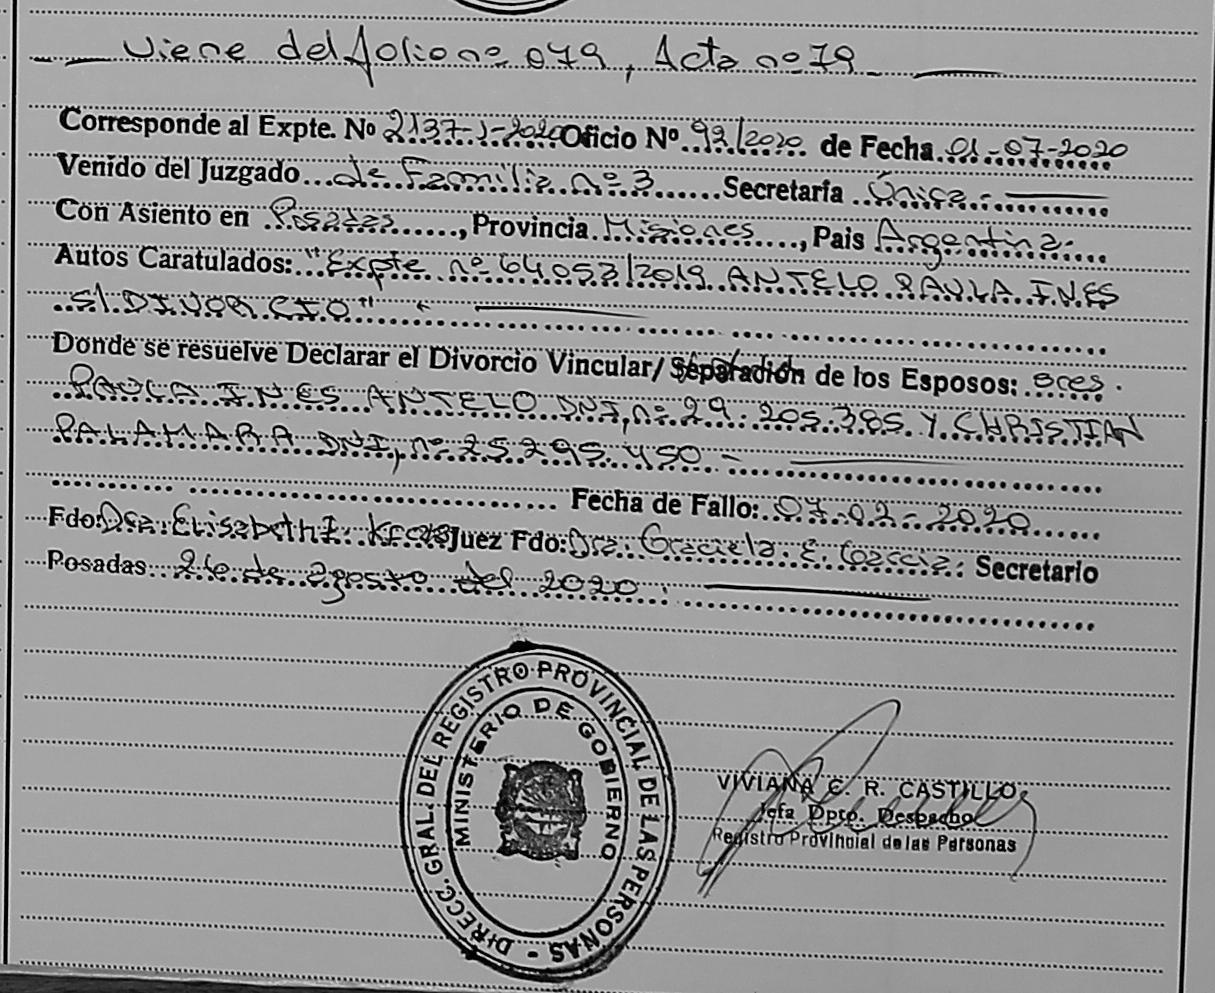 Viene del folio nº 079, Acta nº 79
Corresponde al Expte. Nº 2137-J-2020 Oficio Nº 92/2020 de Fecha 01-07-2020
Venido del Juzgado de Familia nº 3 Secretaría Única.-
Con Asiento en Posadas, Provincia Misiones, Pais Argentina.
Autos Caratulados: "Expte nº 64052/2019 ANTELO PAULA INES
S/ DIVORCIO"
Donde se resuelve Declarar el Divorcio Vincular/ Separación de los Esposos: eres.
PAULA INES ANTELO DNI, nº 29.205.385 Y CHRISTIAN
PALAMARA DNI, nº 25.295.450-
Fecha de Fallo: 07-02-2020
Fdo: Dra. Elisabeth I. Juez Fdo: Dra. Graciela E. Secretario
Posadas 26 de agosto del 2020
DIRECC. GRAL. DEL REGISTRO PROVINCIAL DE LAS PERSONAS -
MINISTERIO DE GOBIERNO
VIVIANA C. R. CASTILLO
Jefa Dpto. Despacho
Registro Provincial de las Personas